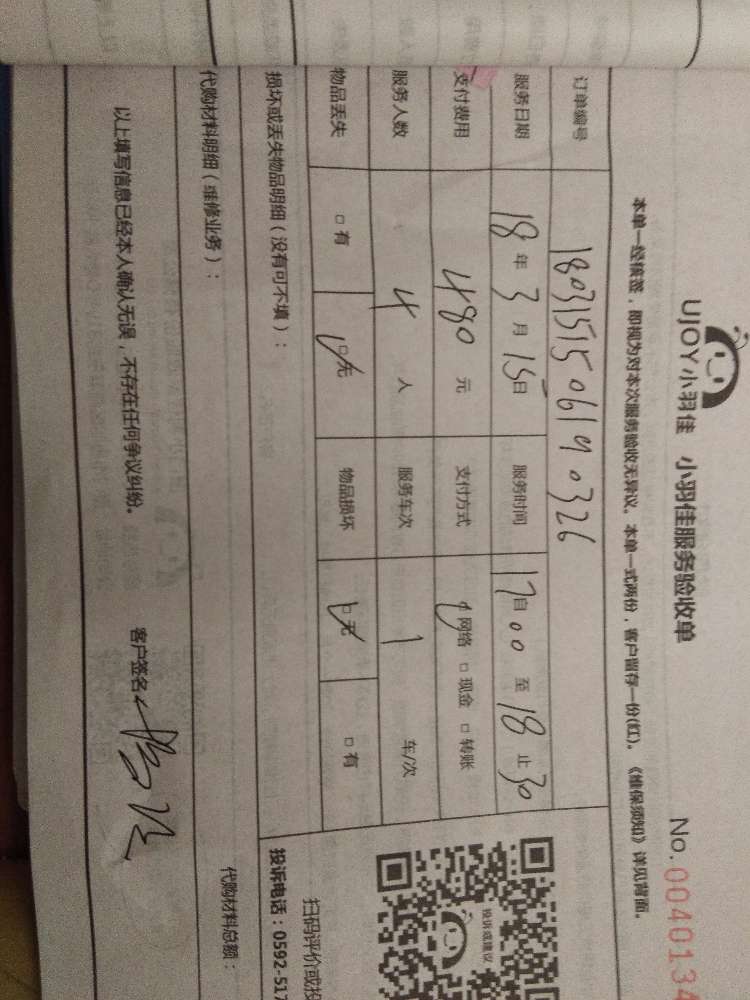 UJOY小羽佳 小羽佳服务验收单
No.0040134
本单一经核签，即视为对本次服务验收无异议。本单一式两份，客户留存一份(红)。《维保须知》详见背面。
订单编号 180315150619 0326
服务日期 18年3月15日 服务时间 17自00至18止30
支付费用 480元 支付方式 网络 □现金 □转账
服务人数 4人 服务车次 1 车/次
物品丢失 □有 □无 物品损坏 □无 □有
损坏或丢失物品明细（没有可不填）：
投诉或建议
扫码评价或投
投诉电话：0592-517
代购材料明细（维修业务）：
代购材料总额：
以上填写信息已经本人确认无误，不存在任何争议纠纷。
客户签名